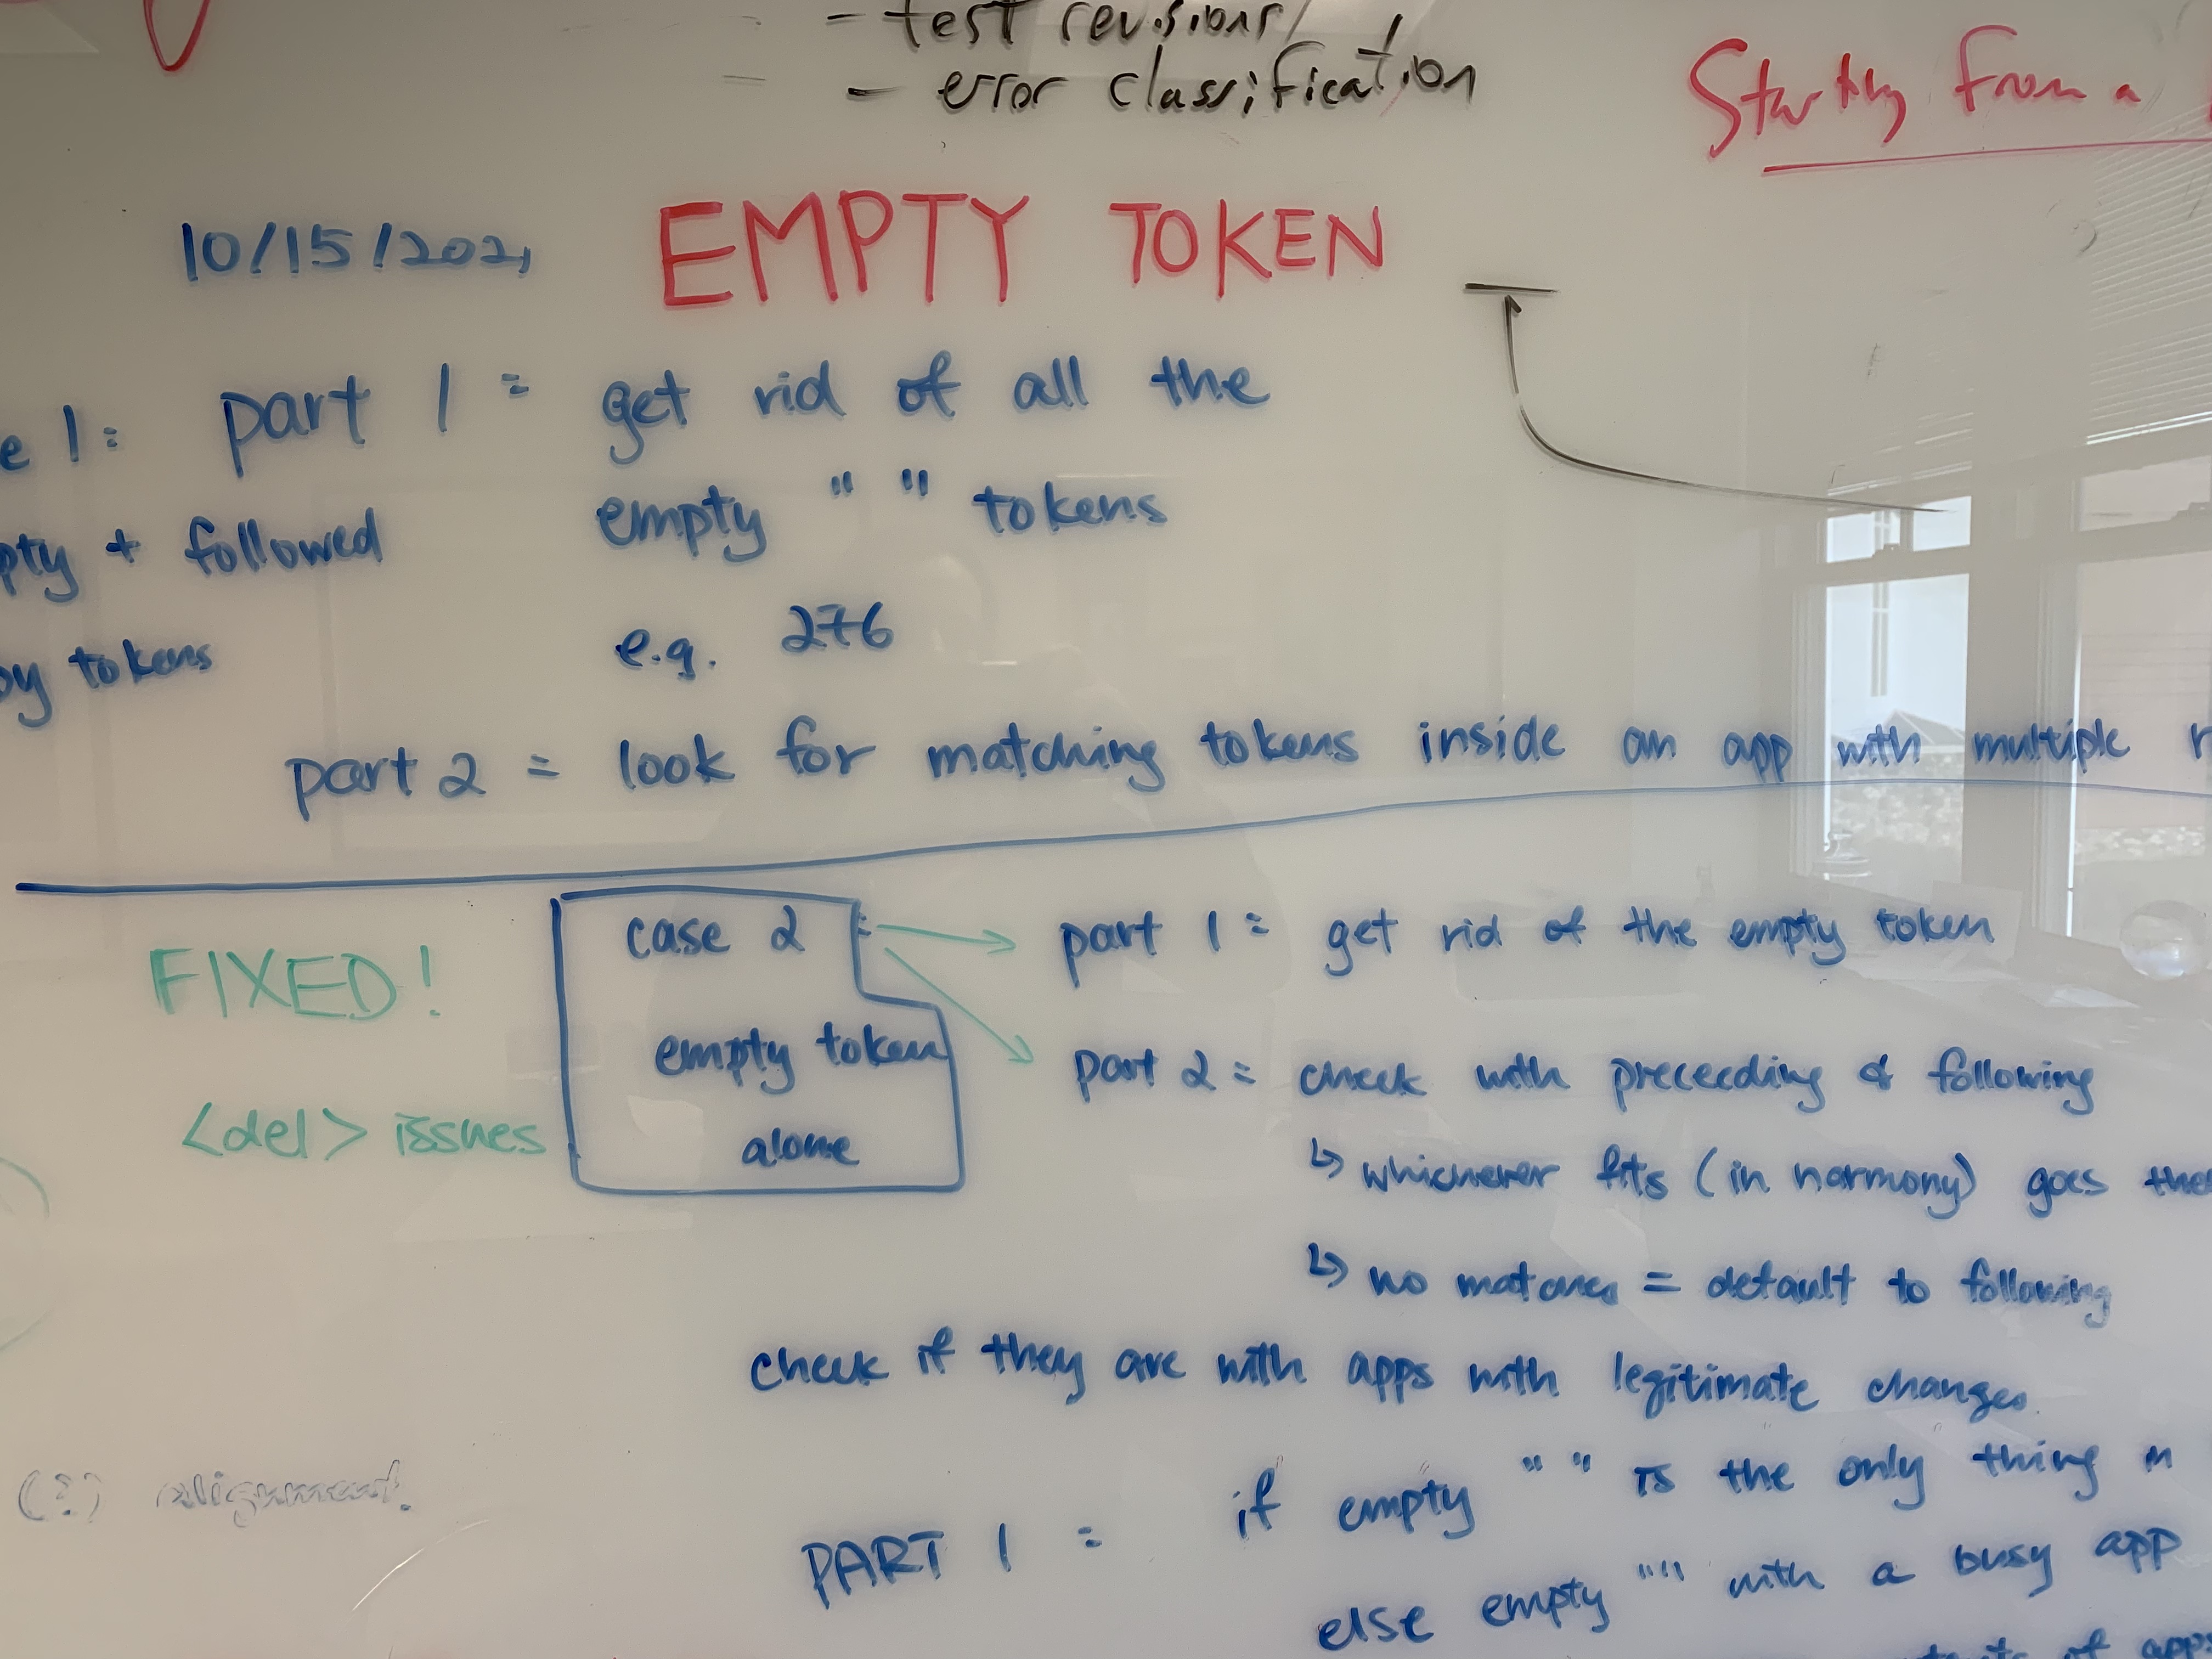 - test revisions/
- error classification
Starting from a
10/15/2021
EMPTY TOKEN
e 1: part 1 = get rid of all the
pty + followed empty " " tokens
by tokens e.g. 276
part 2 = look for matching tokens inside an app with multiple r
FIXED!
<del> issues
case 2 :
empty token
alone
part 1 = get rid of the empty token
part 2 = check with preceeding & following
↳ whichever fits (in harmony) goes the
↳ no matches = default to following
check if they are with apps with legitimate changes.
(?) alignment.
PART 1 : if empty " " is the only thing in
else empty "" with a busy app
of apps